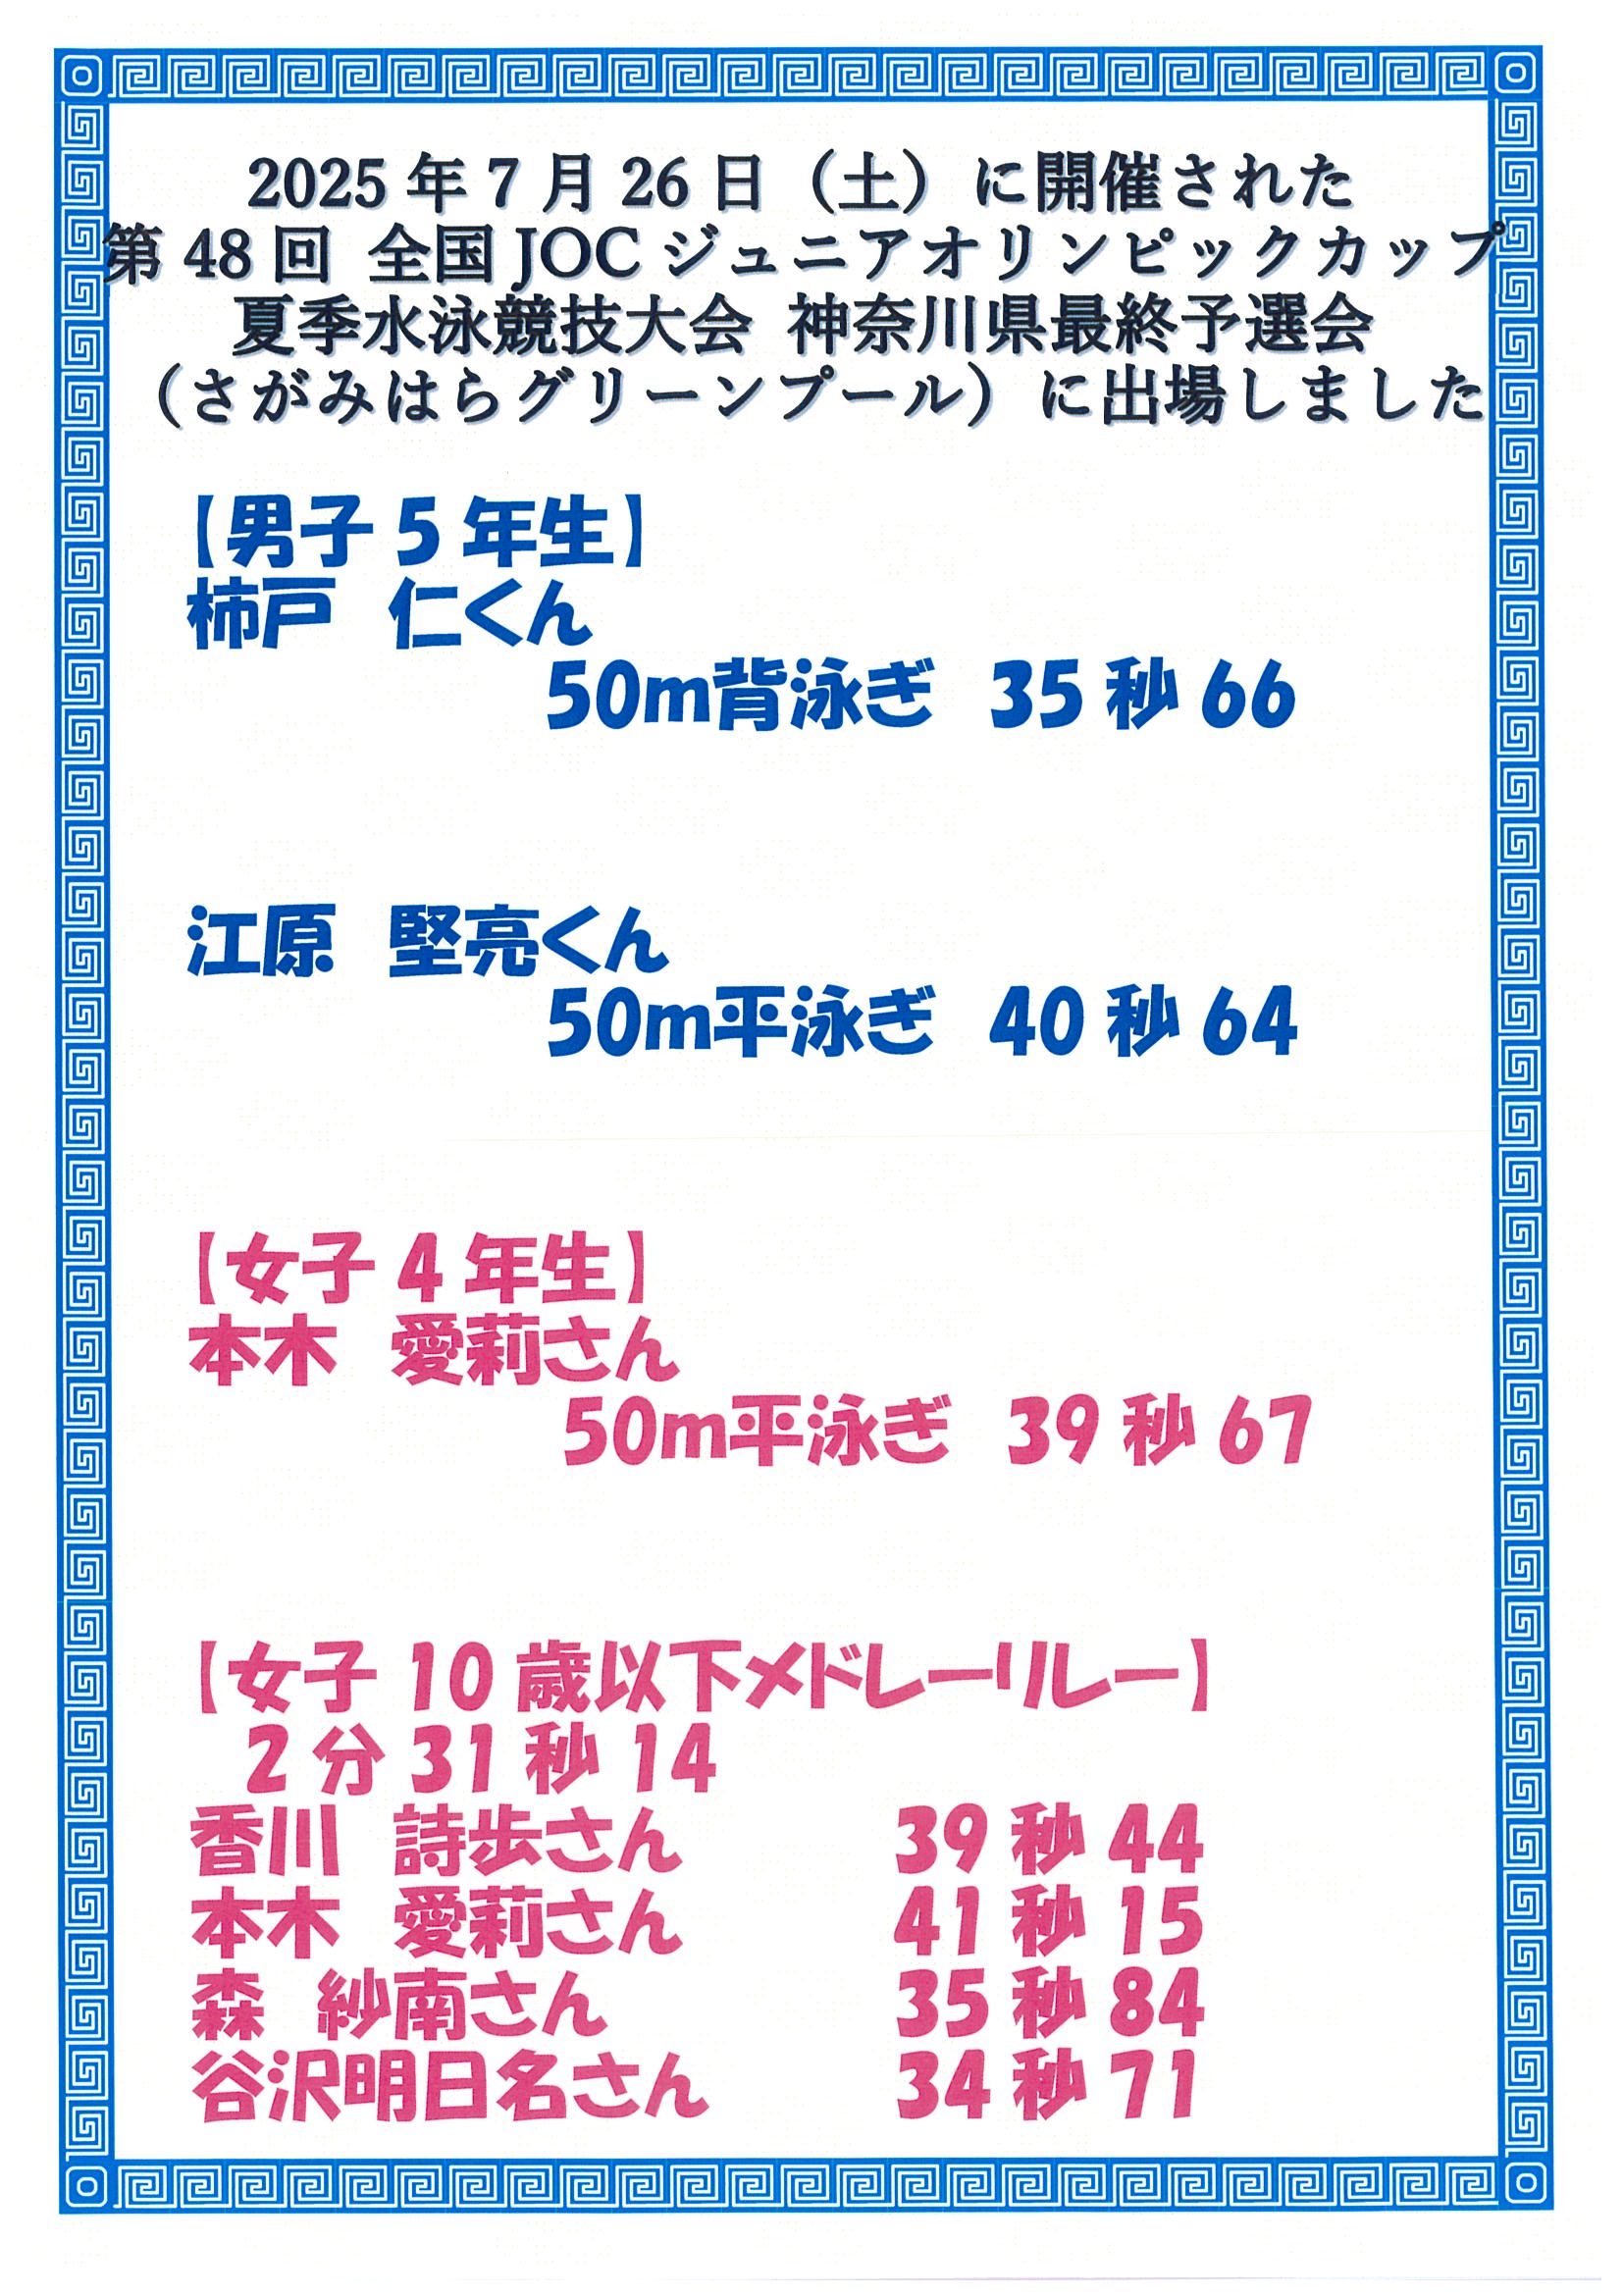 2025年7月26日（土）に開催された
第48回 全国JOCジュニアオリンピックカップ
夏季水泳競技大会 神奈川県最終予選会
（さがみはらグリーンプール）に出場しました
【男子5年生】
柿戸 仁くん
50m背泳ぎ 35秒66
江原 堅亮くん
50m平泳ぎ 40秒64
【女子4年生】
本木 愛莉さん
50m平泳ぎ 39秒67
【女子10歳以下メドレーリレー】
2分31秒14
香川 詩歩さん 39秒44
本木 愛莉さん 41秒15
森 紗南さん 35秒84
谷沢明日名さん 34秒71